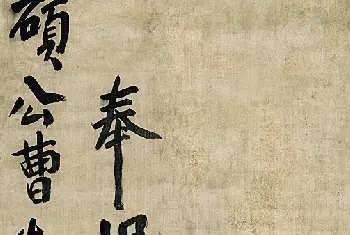 奉
碩公曹